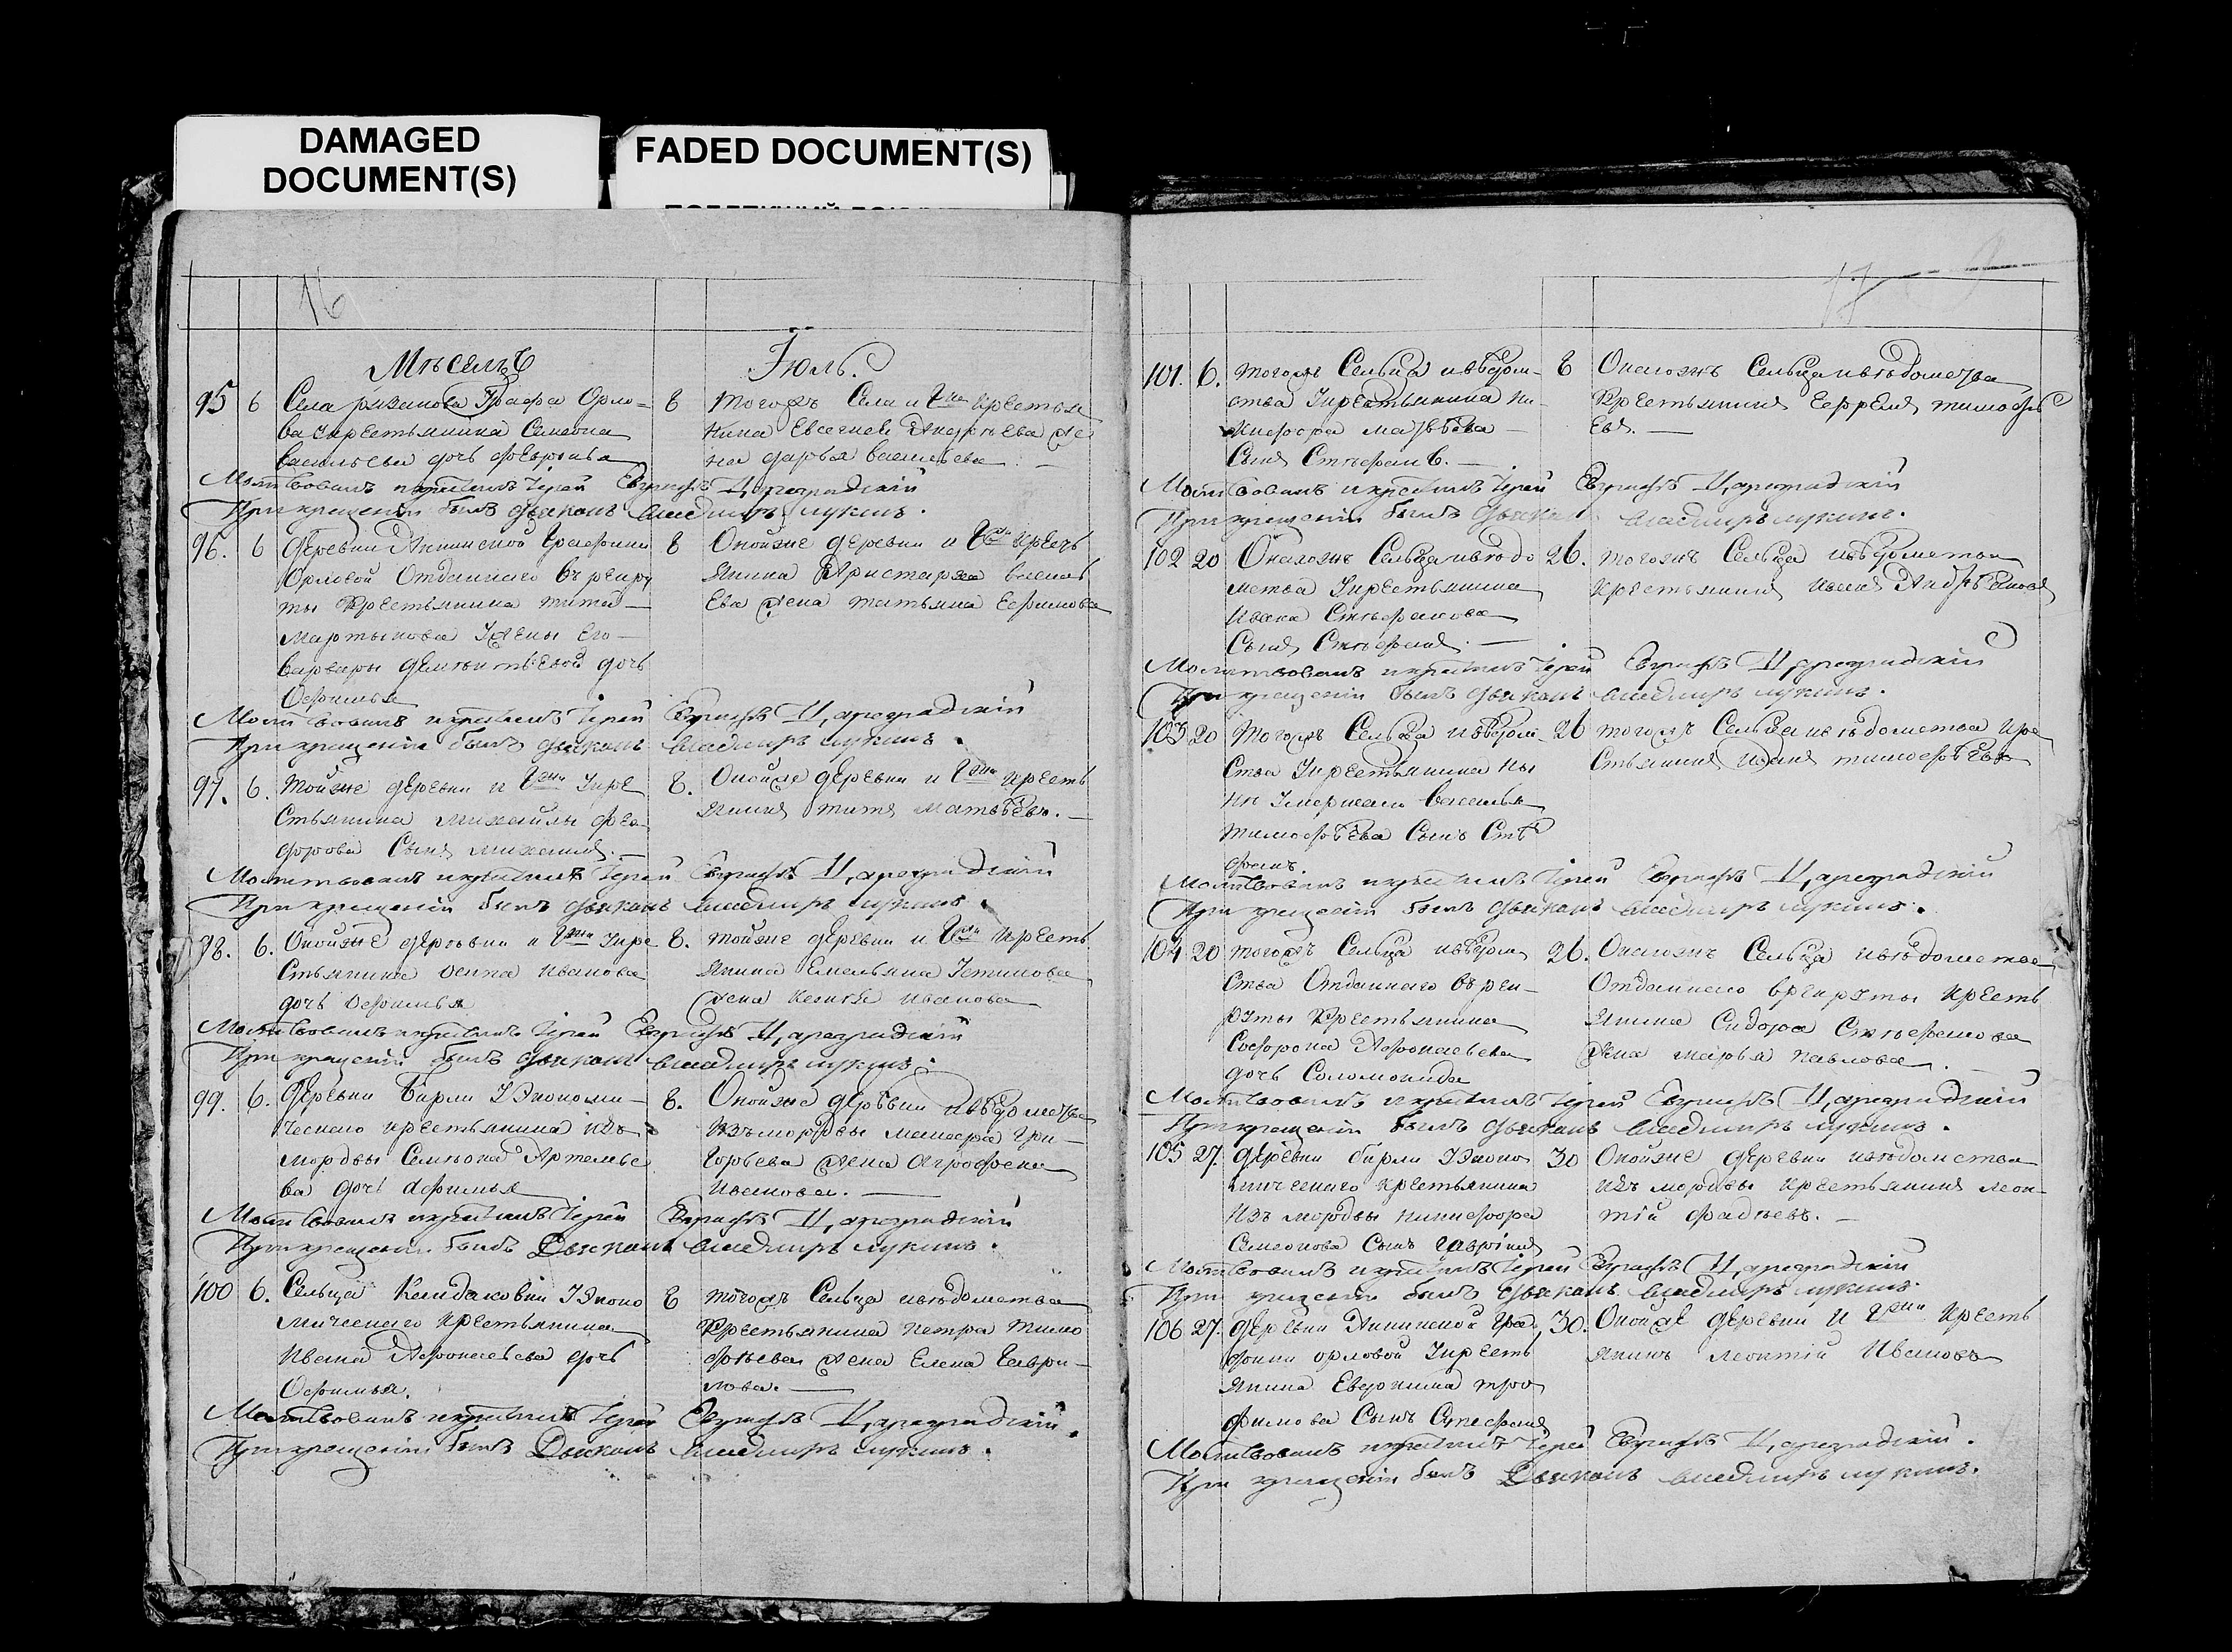 DAMAGED
DOCUMENT(S)
FADED DOCUMENT(S)
16
Мѣсецъ
Июль.
95 6 Села Рязанова Графа Орло=
ва укрестьянина Симеона
васильева дочь феврониа
8 того жъ Села и Г. крестья
нина Евсегнея Андреева же
на дарья васильева.
Молитвовалъ и крестилъ Иерей Евграфъ Цареградский
При крещении былъ дьяконъ владимиръ лукинъ.
96. 6 деревни Аннинской Графини
Орловой Отданнаго въ рекру
ты Крестьянина тита
Мартынова Жены Его
варвары дементьевой дочь
Офимья
8 Оной же деревни и Г. кресть
янина Аристарха василь
Ева жена татьяна Ефимова
Молитвовалъ и крестилъ Иерей Евграфъ Цареградский
При крещении былъ дьяконъ владимиръ лукинъ.
97. 6. Той же деревни и Г. укре
стьянина михайлы фео
дорова Сынъ михаилъ.
8. Оной же деревни и Г. кресть
янинъ титъ матвѣевъ.
Молитвовалъ и крестилъ Иерей Евграфъ Цареградский
При крещении былъ дьяконъ владимиръ лукинъ.
98. 6. Оной же деревни и Г. укре
стьянина осипа иванова
дочь офимья
8. той же деревни и Г. кресть
янина Емельяна Устинова
жена иванова
Молитвовалъ и крестилъ Иерей Евграфъ Цареградский
При крещении былъ дьяконъ владимиръ лукинъ.
99. 6. Деревни Бирли УЭкономи-
ческаго крестьянина изъ
мордвы Семиона Артемье
ва дочь Афимья
8. Оной же деревни и ведомства
изъ мордвы Гри-
горьева жена Аграфена
иванова.
Молитвовалъ и крестилъ Иерей Евграфъ Цареградский
При крещении былъ Дьяконъ владимиръ лукинъ.
100 6. Сельца Кандаковки УЭконо
мическаго крестьянина
Ивана Афонасьева дочь
Офимья.
8 того жъ Сельца и ведомства
Крестьянина петра тимо
фѣева жена Елена Гаври-
лова.
Молитвовалъ и крестилъ Иерей Евграфъ Цареградский.
При крещении былъ Дьяконъ владимиръ лукинъ.
17
101. 6. того жъ Сельца и вѣдом-
ства Укрестьянина ни-
кифора матвѣева
Сынъ Стефанъ.
8 Онаго жъ Сельца и ведомства
Крестьянинъ Ефремъ тимофѣ
Евъ.
Молитвовалъ и крестилъ Иерей Евграфъ Цареградский
При крещении былъ дьяконъ владимиръ лукинъ.
102 20 Онаго жъ Сельца и ведо
мства Укрестьянина
Ивана Стефанова
Сынъ Стефанъ.
26. того жъ Сельца и вѣдомства
крестьянинъ иванъ Андреяновъ
Молитвовалъ и крестилъ Иерей Евграфъ Цареградский
При крещении былъ дьяконъ владимиръ лукинъ.
103 20 Того жъ Сельца и вѣдом-
ства Укрестьянина ны
нѣ умершаго василья
тимофѣева Сынъ Сте
фанъ.
26 того жъ Сельца и ведомства кре
стьянинъ тимофѣевъ
Молитвовалъ и крестилъ Иерей Евграфъ Цареградский
При крещении былъ дьяконъ владимиръ лукинъ.
104 20 того жъ Сельца и вѣдом
ства Отданнаго въ рек-
руты Крестьянина
Софрона Афонасьева
дочь Соломонида
26. Онаго жъ Сельца и ведомства
Отданнаго в рекруты кресть
янина Сидора Стефанова
жена марья павлова.
Молитвовалъ и крестилъ Иерей Евграфъ Цареградский
При крещении былъ дьяконъ владимиръ лукинъ.
105 27. деревни бирли УЭконо
мическаго крестьянина
изъ мордвы никифора
Семионова Сынъ Гаврилъ
30 Оной же деревни и ведомства
изъ мордвы крестьянинъ леон-
тий фадѣевъ.
Молитвовалъ и крестилъ Иерей Евграфъ Цареградский
При крещении былъ дьяконъ владимиръ лукинъ.
106 27. деревни Аннинской Гра
фини орловой Укресть
янина тро
фимова Сынъ Стефанъ
30. Оной же деревни и Г. кресть
янинъ леонтий Ивановъ
Молитвовалъ и крестилъ Иерей Евграфъ Цареградский.
При крещении былъ Дьяконъ владимиръ лукинъ.